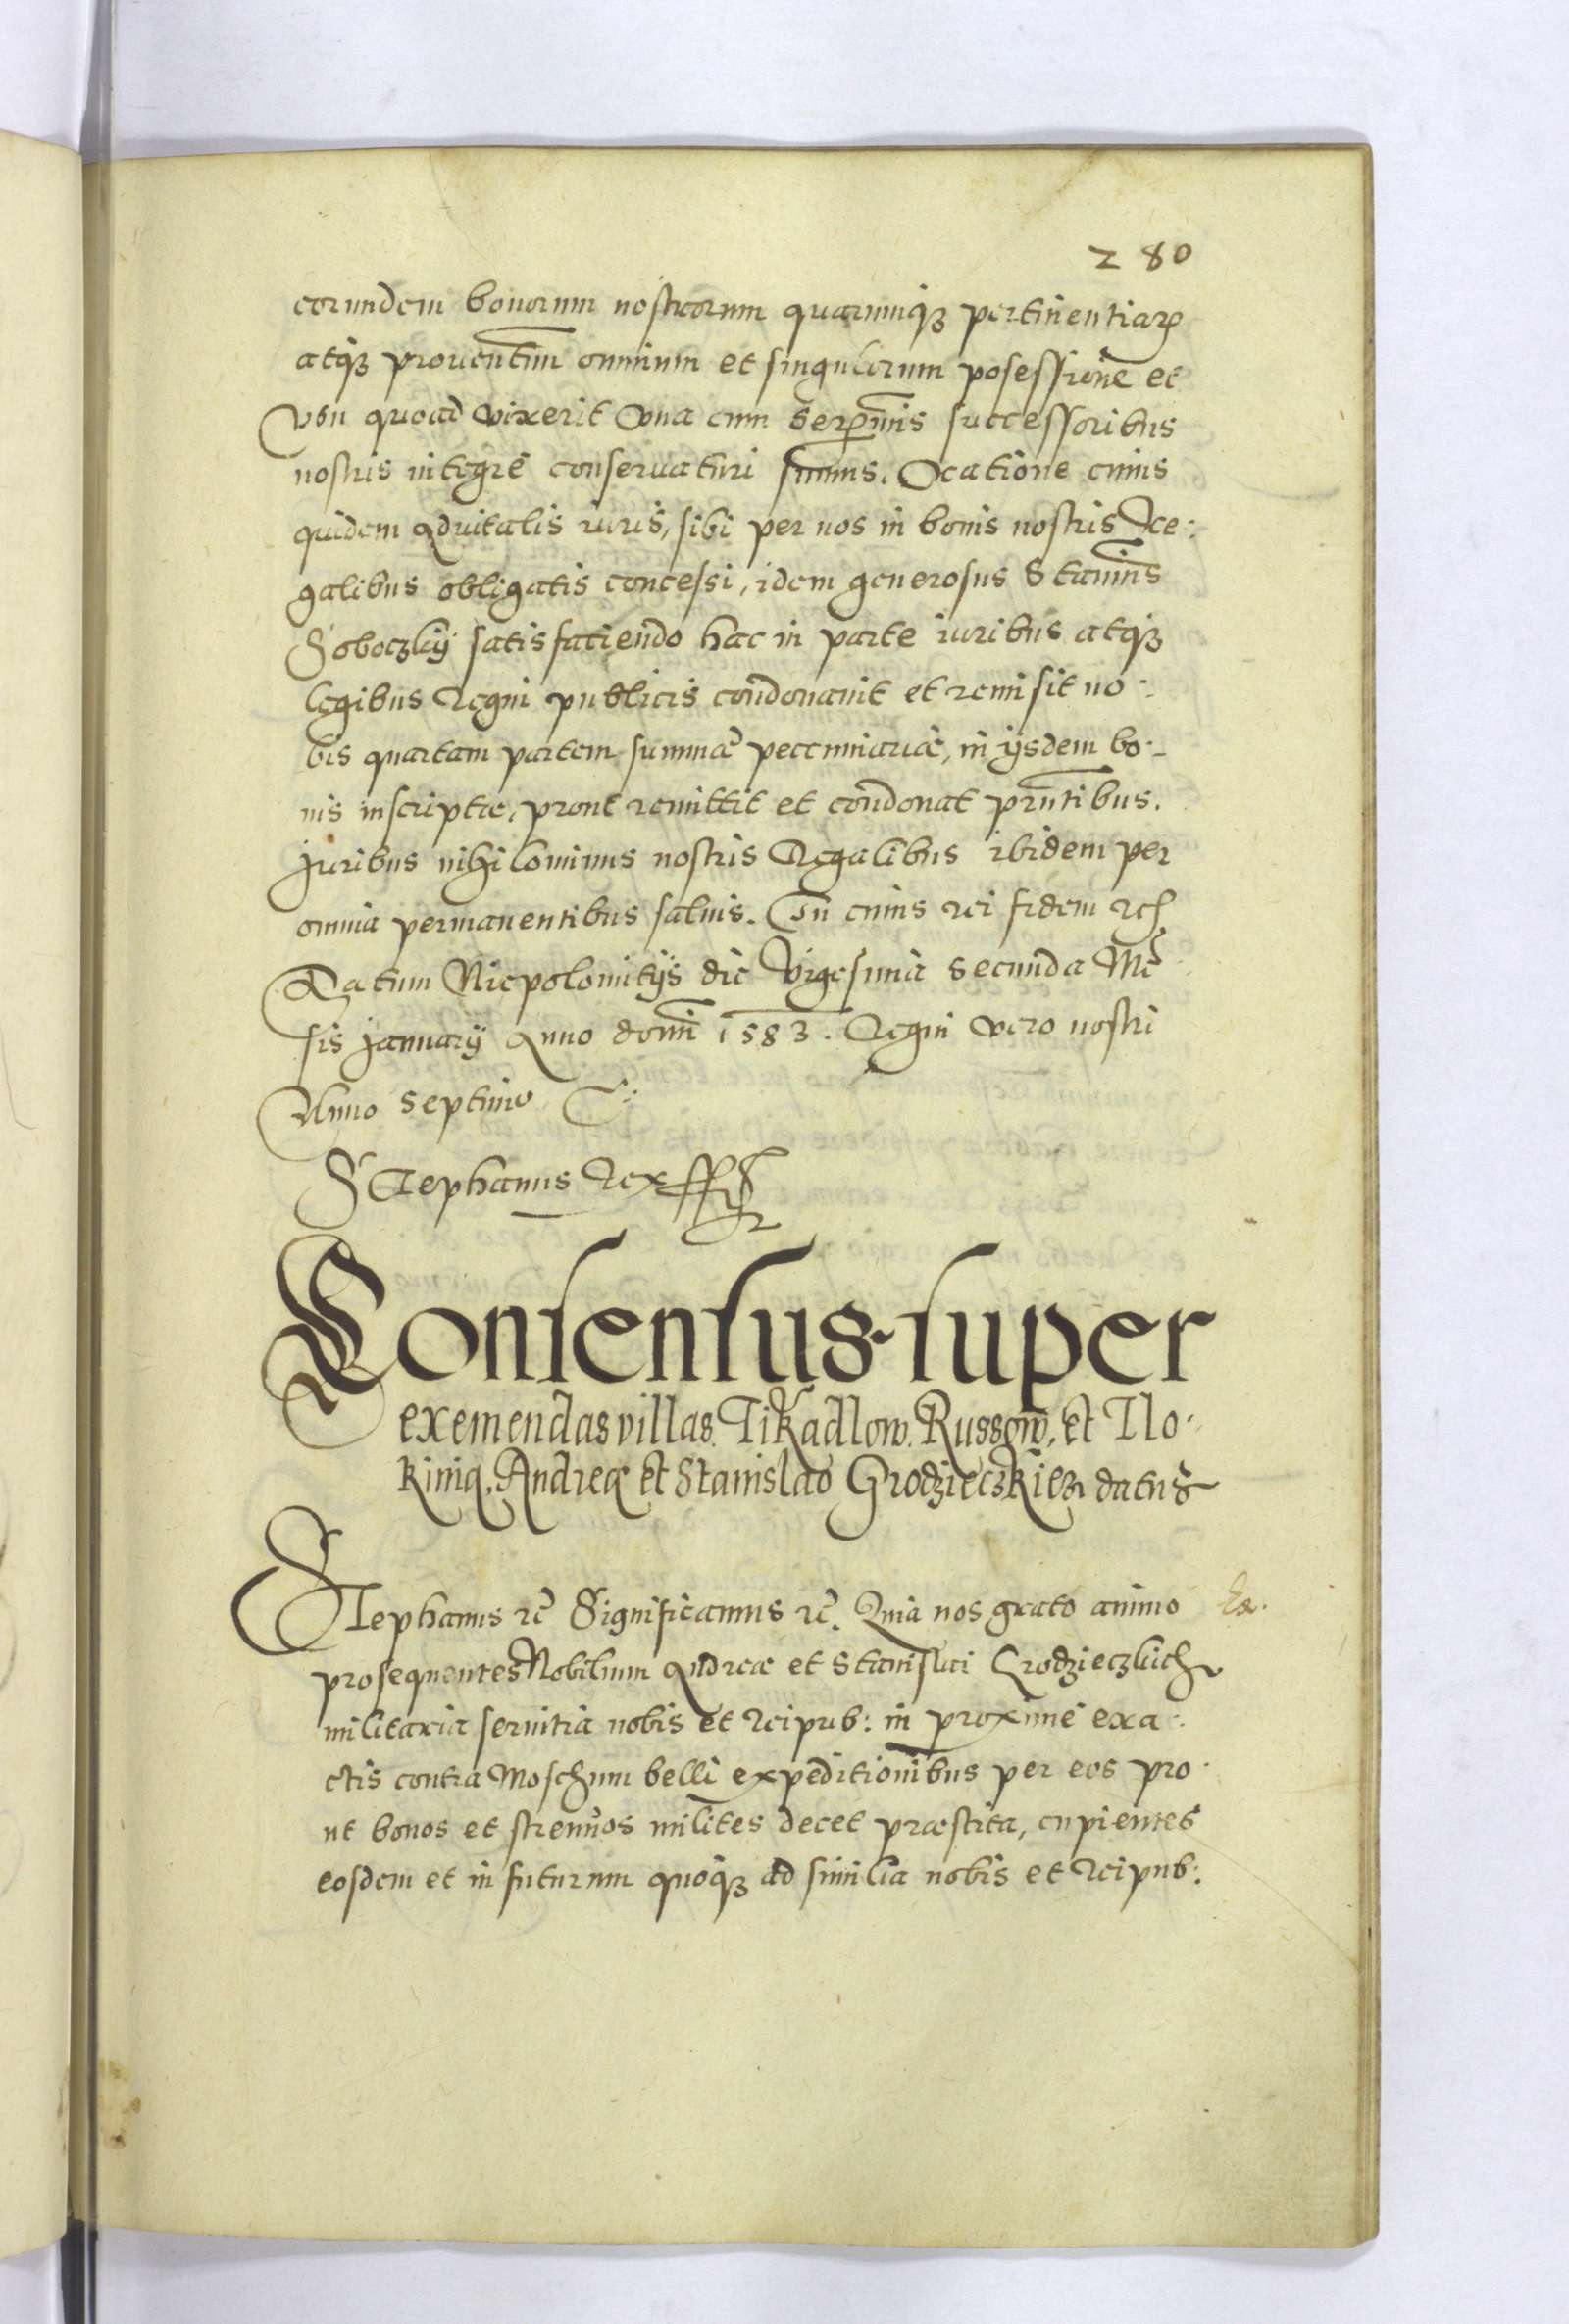 280
eorundem bonorum nostrorum quarumq₃ pertinentiarꝝ
atq₃ prouentuum omnium et singulorum posessione et
Vsu quoad vixerit vna cum Serenmis successoribus
nostris integre conseruaturi sumus. Ocatione cuius
quidem aduitalis iuris, sibi per nos in bonis nostris Re:
galibus obligatis concessi, idem generosus Stanius
Soboczkij satisfatiendo hac in parte iuribus atq₃
legibus Regni publicis condonauit et remisit no:
bis quartam partem summæ peccuniariæ, in ijsdem bo:
nis inscriptæ, prout remittit et condonat prntibus.
Juribus nihilominus nostris Regalibus ibidem per
omnia permanentibus saluis. In cuius rei fidem etc
Datum Niepolomitijs die Vigesima secunda Mē
sis January Anno domi 1583. Regni vero nostri
Anno septimo
Stephanus Rex ssst
Consensus super
exemendas villas. Tikadlow. Russow, et Tlo:
kinia. Andreæ et Stanislao Grodzieczkiem datus
Stephanus etc Significamus etc. Quia nos grato animo
prosequentes Nobilium Andreæ et Stanislai Grodzieczkich
militaria seruitia nobis et Reipub: in proxime exa:
ctis contra Moschum belli expeditionibus per eos pro
ut bonos et strenuos milites decet præstita, cupientes
eosdem et in futurum quoq₃ ad similia nobis et Reipub: